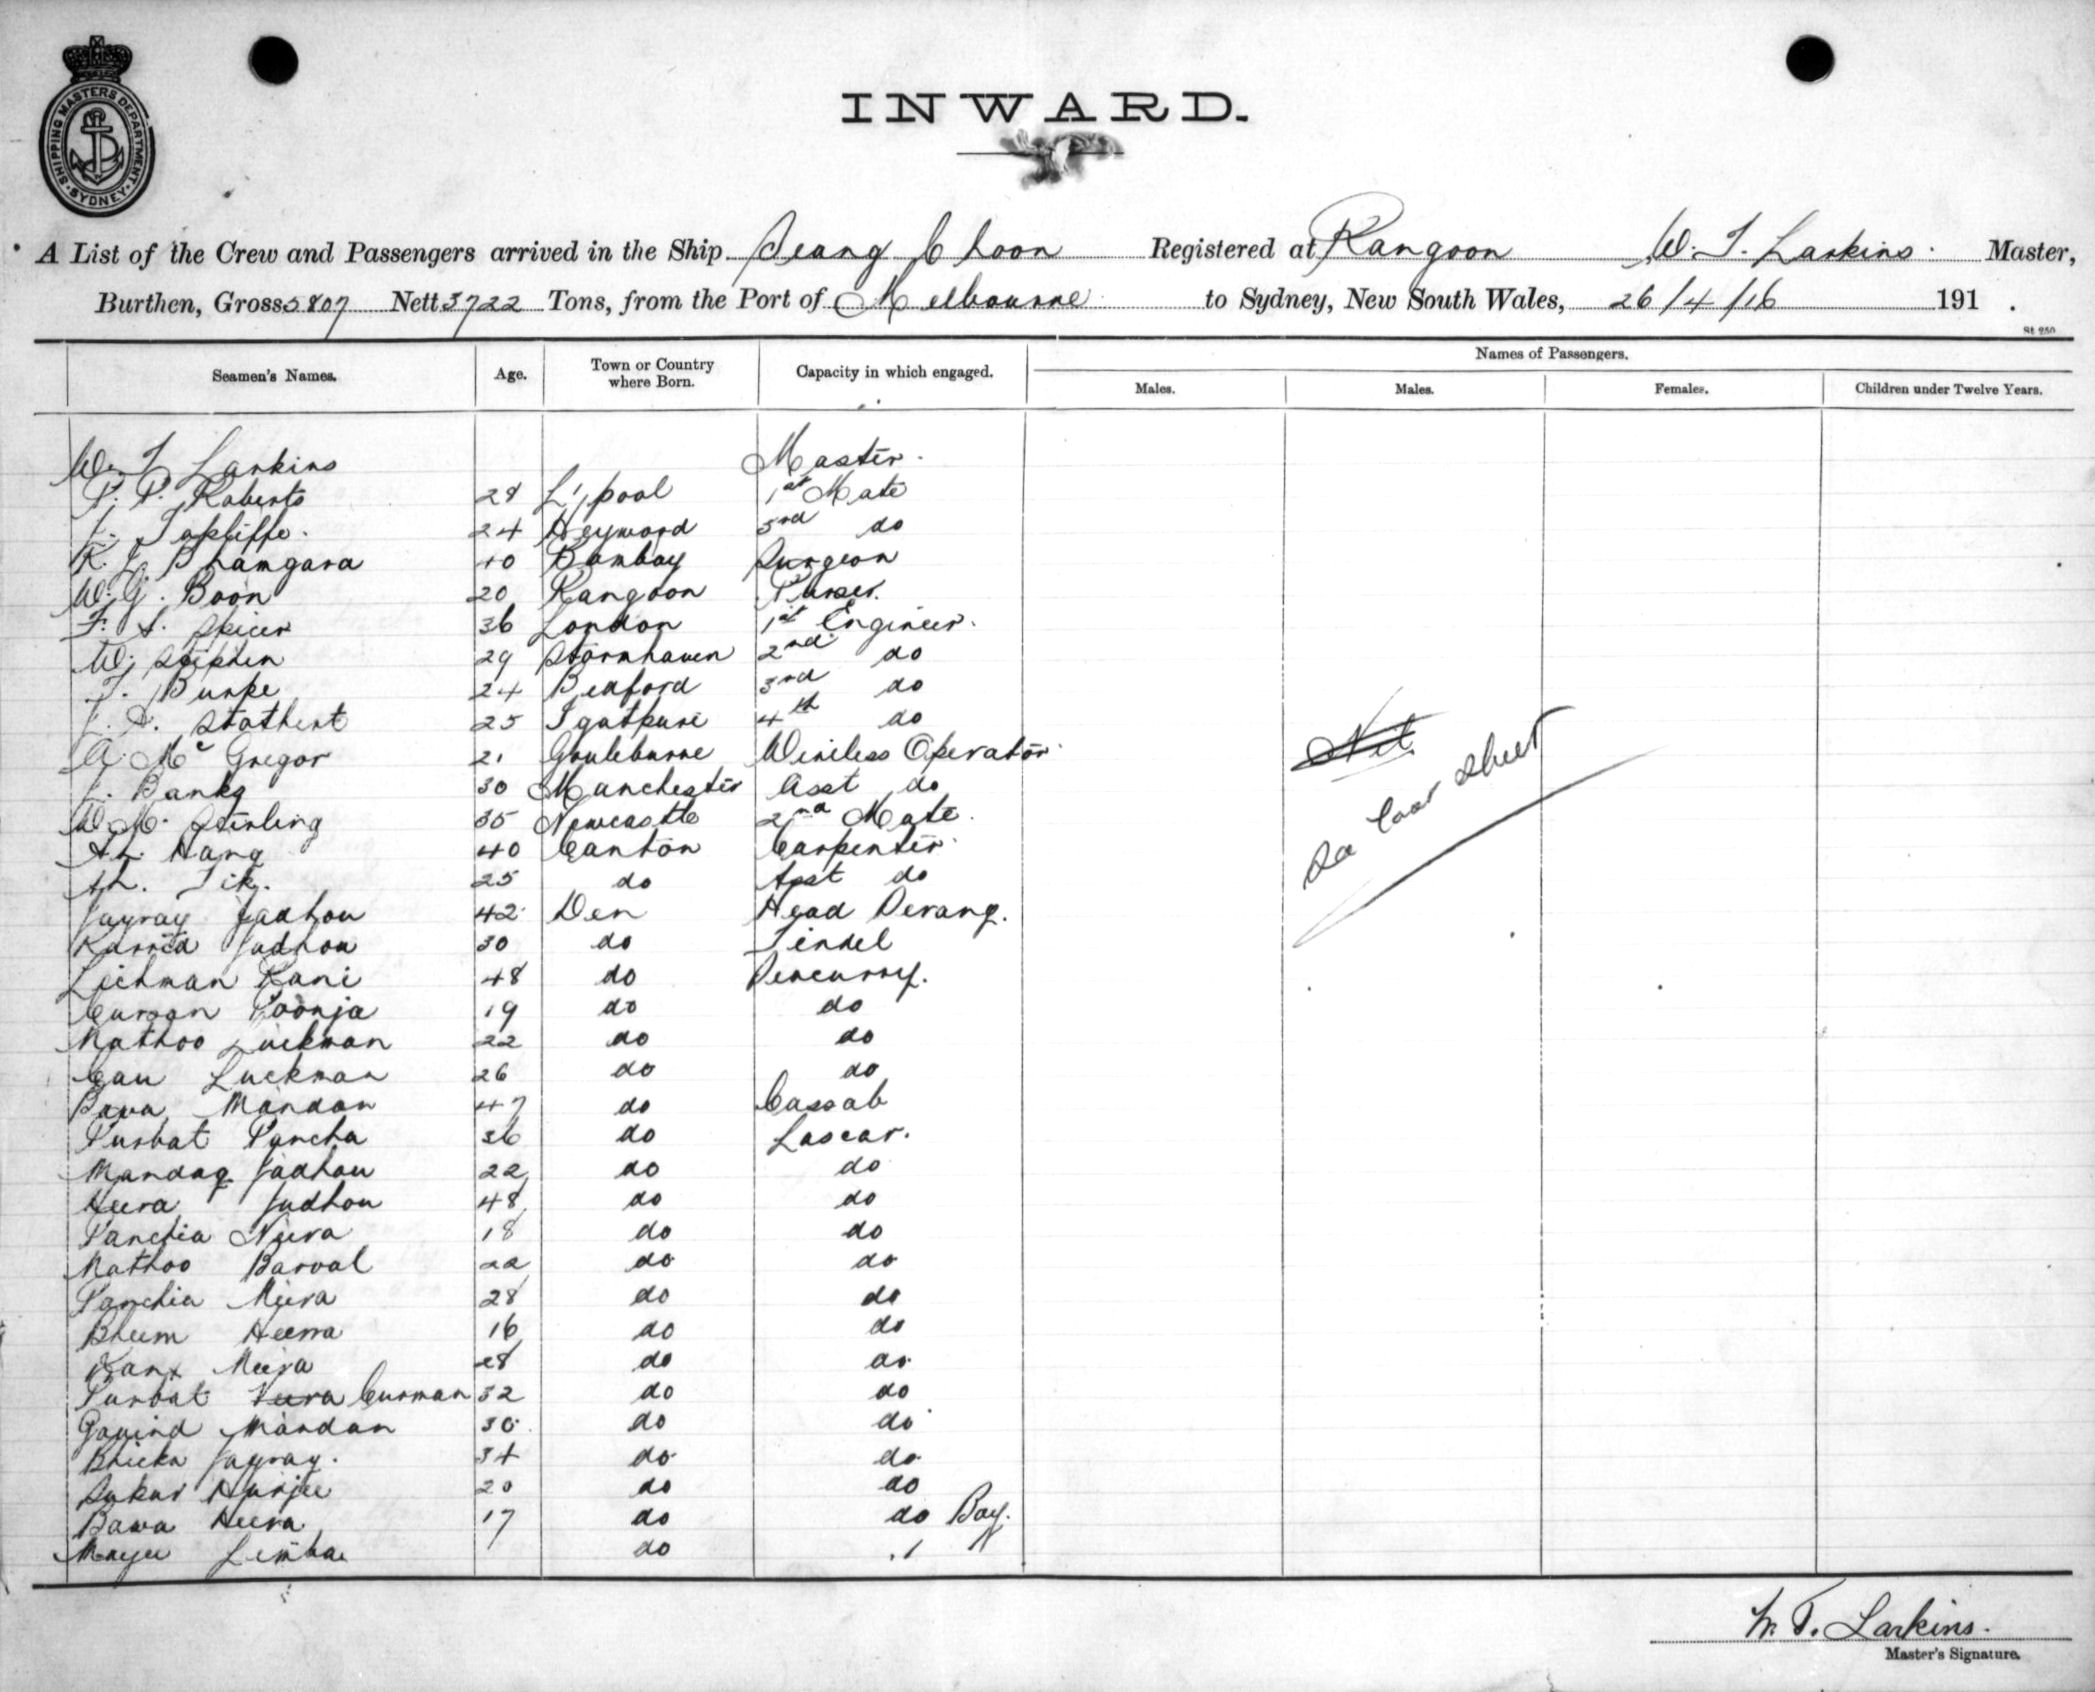 SHIPPING MASTERS DEPARTMENT SYDNEY
INWARD.
A List of the Crew and Passengers arrived in the Ship Seang Choon Registered at Rangoon W. T. Larkins. Master,
Burthen, Gross 5807 Nett 3722 Tons, from the Port of Melbourne to Sydney, New South Wales, 26/4/16 191 .
St 250
Names of Passengers.
Seamen's Names. Age. Town or Country where Born. Capacity in which engaged. Males. Males. Females. Children under Twelve Years.
W. T. Larkins Master.
P. P. Roberts 28 L'pool 1st Mate
24 Heyword 3rd do
Bhamgara 40 Bombay Surgeon
W. G. Boon 20 Rangoon Purser.
F. S. Spicer 36 London 1st Engineer.
W. Stephen 29 Stonehaven 2nd do
T. Burke 24 Bedford 3rd do
J. A. Stothert 25 Igatpuri 4th do
A. McGregor 21 Gouleburne Wireless Operator
J. Banks 30 Manchester Asst do
W M. Stirling 35 Newcastle 2nd Mate.
Ah. Hang 40 Canton Carpenter.
Ah. Tik. 25 do Asst do
Jayray Jadhou 42 Den Head Serang.
Jadhou 30 do Tindel
Lichman Rani 48 do Seacunny.
Poonja 19 do do
Nathoo Luckman 22 do do
Gau Luckman 26 do do
Bava Mandan 47 do Cassab
Purbat Pancha 36 do Lascar.
Mandag Jadhou 22 do do
Heera Jadhou 48 do do
Panchia Neera 18 do do
Nathoo Barval 22 do do
Panchia Meera 28 do do
Bheem Heerra 16 do do
Meera 28 do do
Purbat Veera Curman 32 do do
Govind Mandan 30 do do
Bhicka Jayray. 34 do do
Sukur Hurjee 20 do do
Bawa Heera 17 do do Boy.
Limba do
Nil
See last sheet
W. T. Larkins.
Master's Signature.